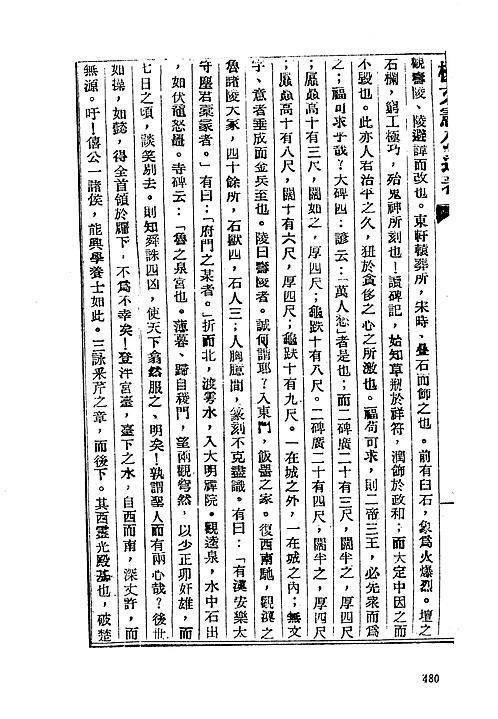 觀壽陵、陵避諱而改也。東軒轅葬所，宋時、疊石而飾之也。前有白石，象爲火爆烈。壇之
石欄，窮工極巧，殆鬼神所刻也！讀碑記，始知草刱於祥符，潤飾於政和；而大定中因之而
不毀也。此亦人君治平之久，狃於貪侈之心之所激也。福苟可求，則二帝三王，必先衆而爲
之；福可求乎哉？大碑四：諺云：「萬人愁」者是也；而二碑廣二十有三尺，闊半之，厚四尺
；贔屭高十有三尺，闊如之，厚四尺；龜趺十有八尺。二碑廣二十有四尺，闊半之，厚四尺
；贔屭高十有八尺，闊十有六尺，厚四尺；龜趺十有九尺。一在城之外，一在城之內；無文
字、意者垂成而金兵至也。陵曰壽陵者。誠何謂耶？入東門，飯器之家。復西南馳，觀漢之
魯諸陵大冢，四十餘所，石獸四，石人三；人胸臆間，篆刻不克盡識。有曰：「有漢安樂太
守君豪家者。」有曰：「府門之某者。」折而北，渡雩水，入大明禪院。觀逵泉，水中石出
，如伏黿怒鼉。寺碑云：「魯之泉宮也。薄暮、歸自稷門，望兩觀穹然，以少正卯奸雄，而
七日之頃，談笑剔去。則知舜誅四凶，使天下翕然服之、明矣！孰謂聖人而有兩心哉？後世
如操，如懿，得全首領於牖下，不爲不幸矣！登泮宮臺，臺下之水，自西而南，深丈許，而
無源。吁！僖公一諸侯，能興學養士如此。三詠釆芹之章，而後下。其西靈光殿基也，破楚
480